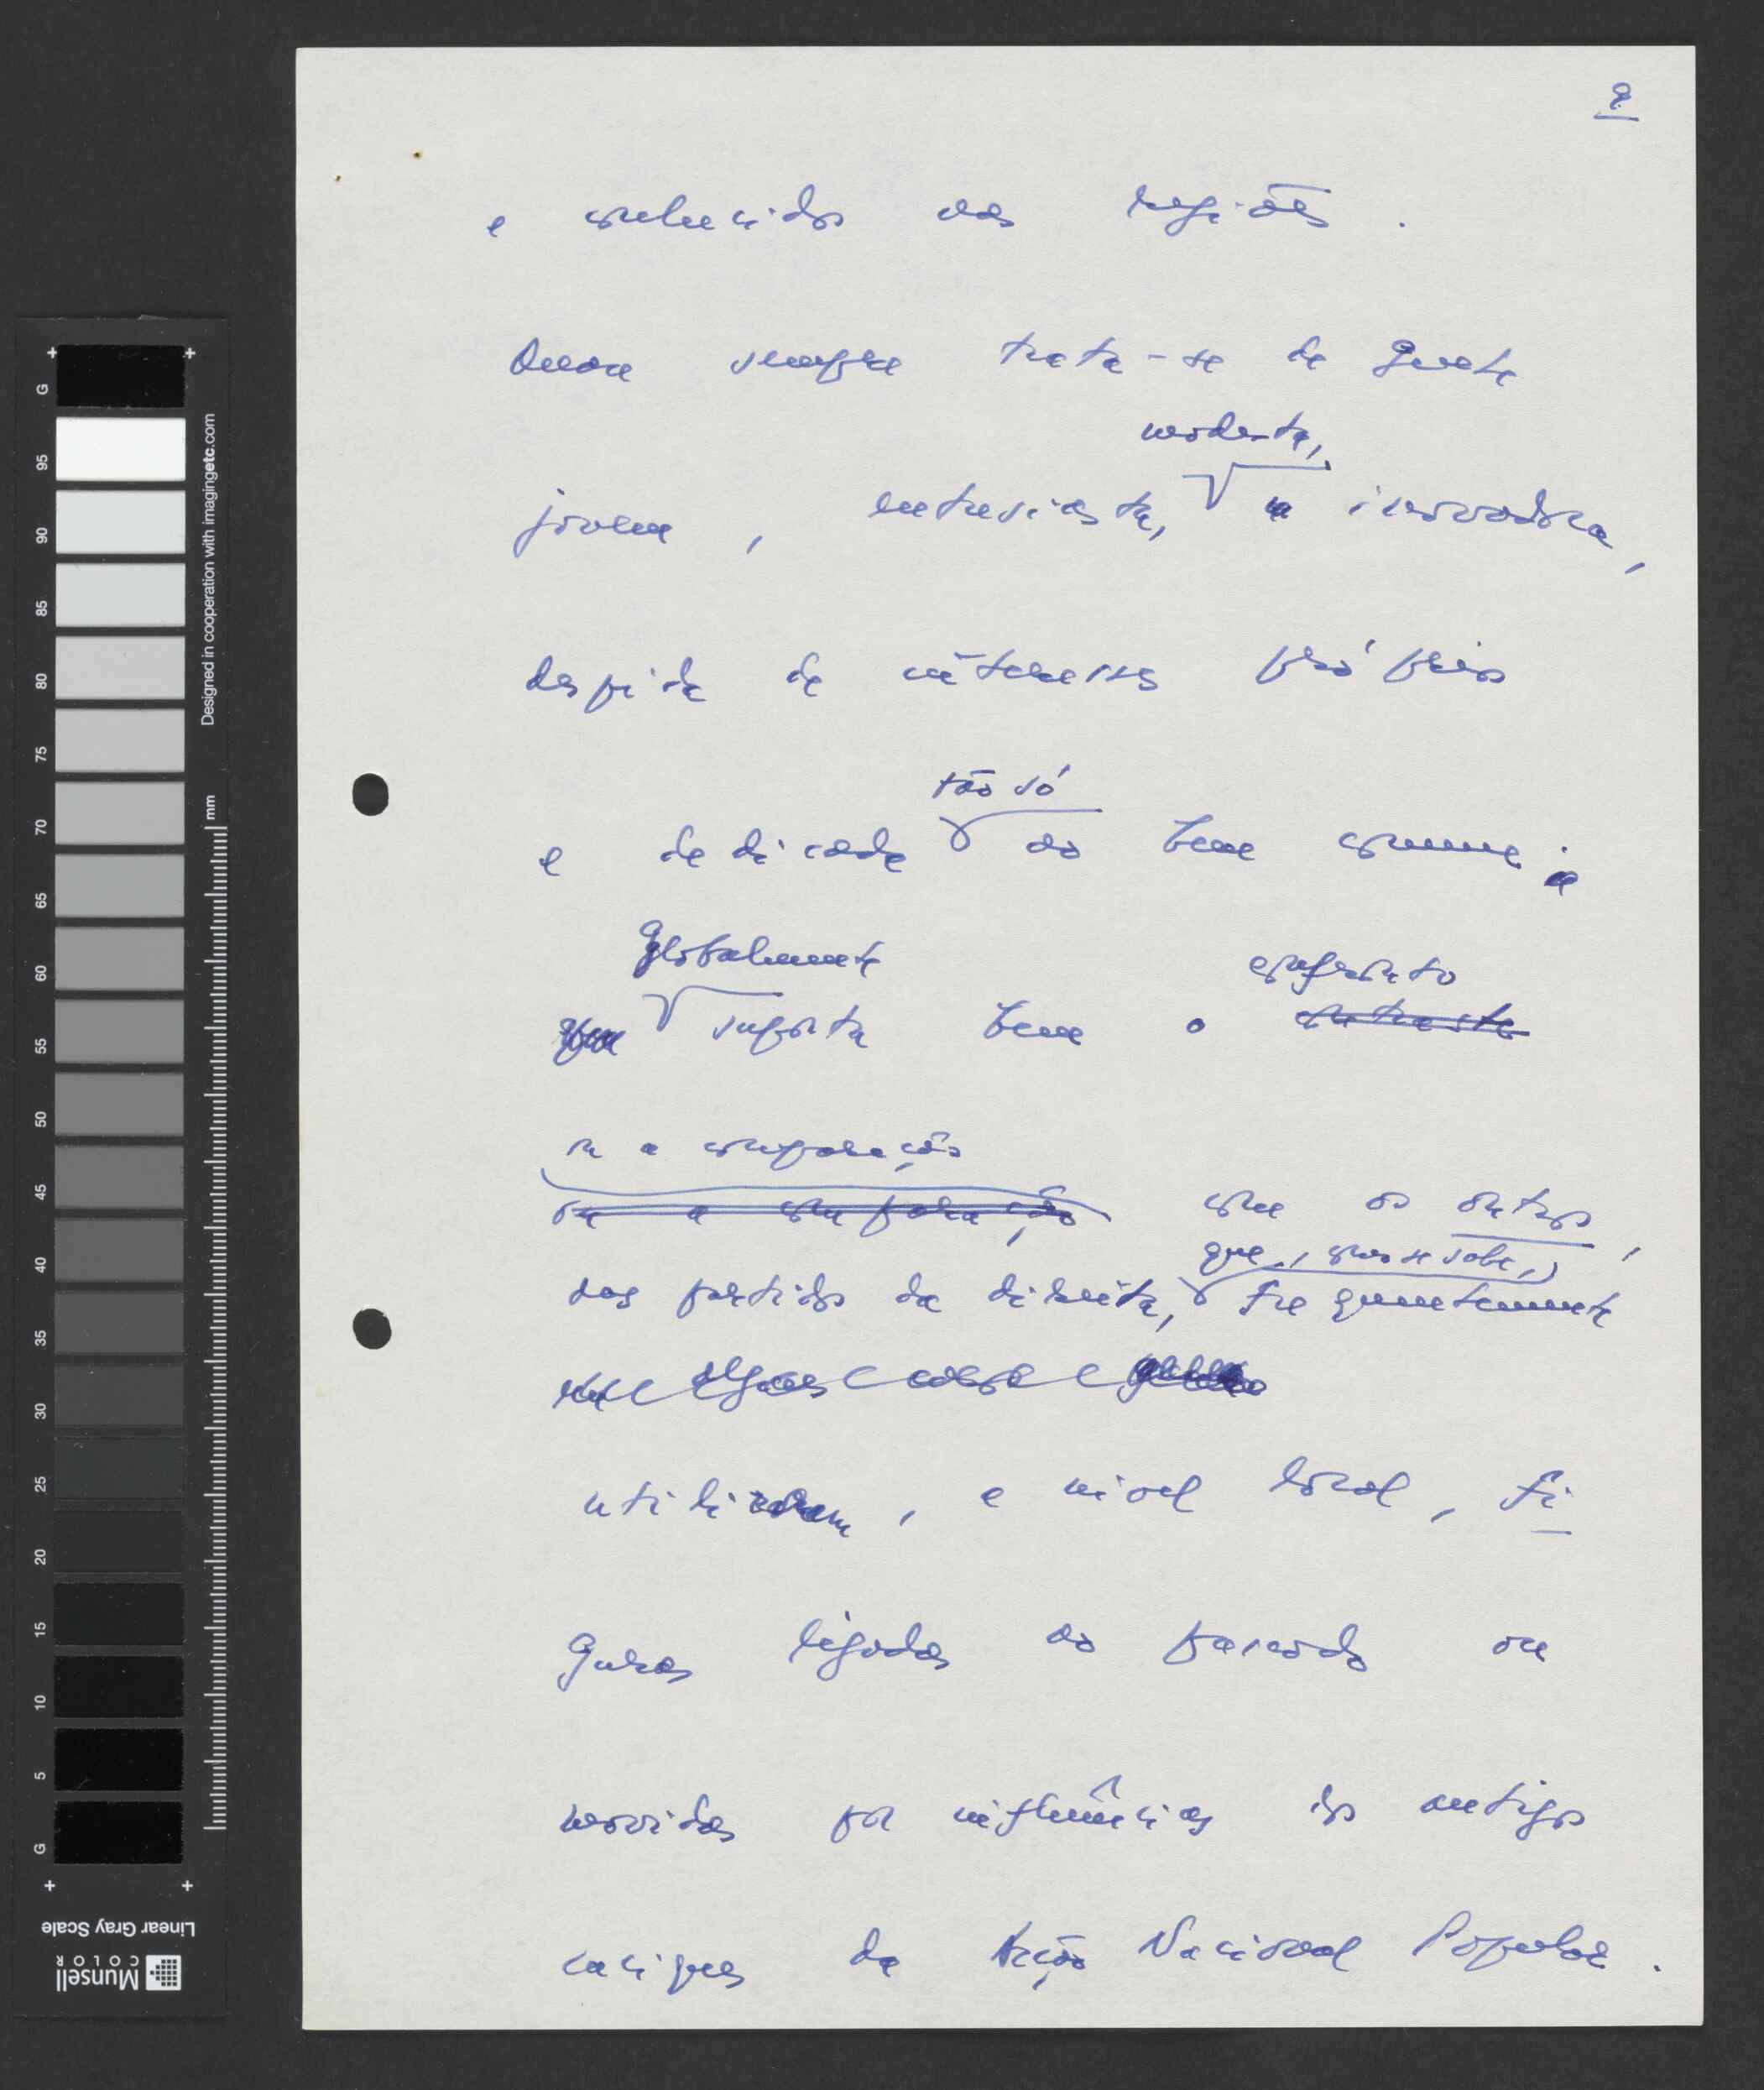 9
e conhecidos nas regiões .
Quase sempre trata-se de gente
modesta,
jovem , entusiasta, e inovadora,
despida de interesses próprios
tão só
e dedicada ao bem comum ;
Globalmente confronto
suporta bem o contraste
ou a comparação
ou a comparação com os outros ,
que, como se sabe,
dos partidos da direita, frequentemente
utilizam , a nível local , fi
guras ligadas ao passado ou
movidas por influências dos antigos
caciques da Acção Nacional Popular .
G 95 90 85 80 75 70 65 60 55 50 45 40 35 30 25 20 15 10 5 G
mm
Designed in cooperation with imagingetc.com
Linear Gray Scale
Munsell
COLOR